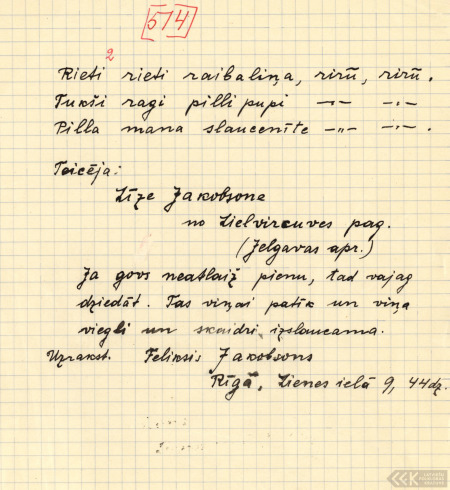 514
2
Rieti rieti raibaliņa, rirū, rirū.
Tukši ragi pilli pupi -"- -"-
Pilla mana slaucenīte -"- -"- .
Teicēja:
Līze Jakobsone
no Lielvircuves pag.
(Jelgavas apr.)
Ja govs neatlaiž pienu, tad vajag
dziedāt. Tas viņai patīk un viņa
viegli un skaidri izslaucama.
Uzrakst. Feliksis Jakobsons
Rīgā, Lienes ielā 9, 44 dz.